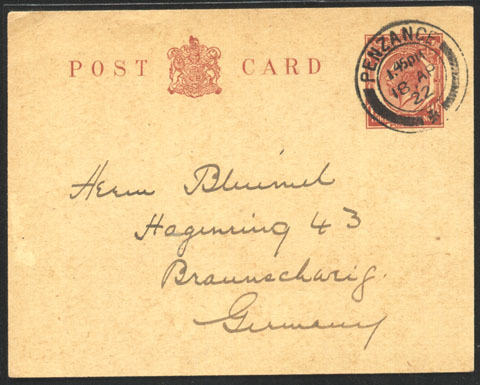 POST CARD
PENZANCE
1.45PM
18 A
22
Herrn Blümel
Hagenring 43
Braunschweig.
Germany